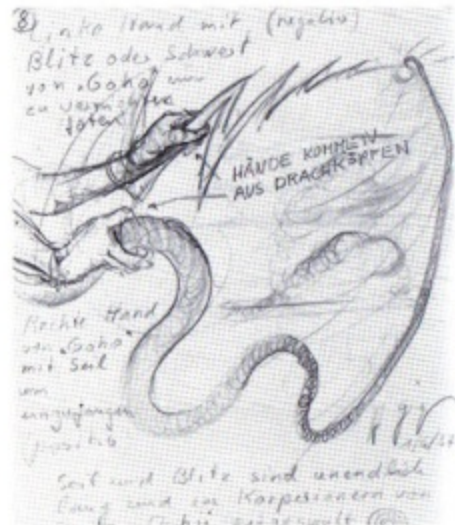 8
Linke Hand mit (negativ)
Blitz oder Schwert
von "Goho" um
zu vernichten
töten
HÄNDE KOMMEN
AUS DRACHKÖPFEN
Rechte Hand
von "Goho"
mit Seil
um
einzufangen
positiv
Seil und Blitz sind unendlich
lang und im